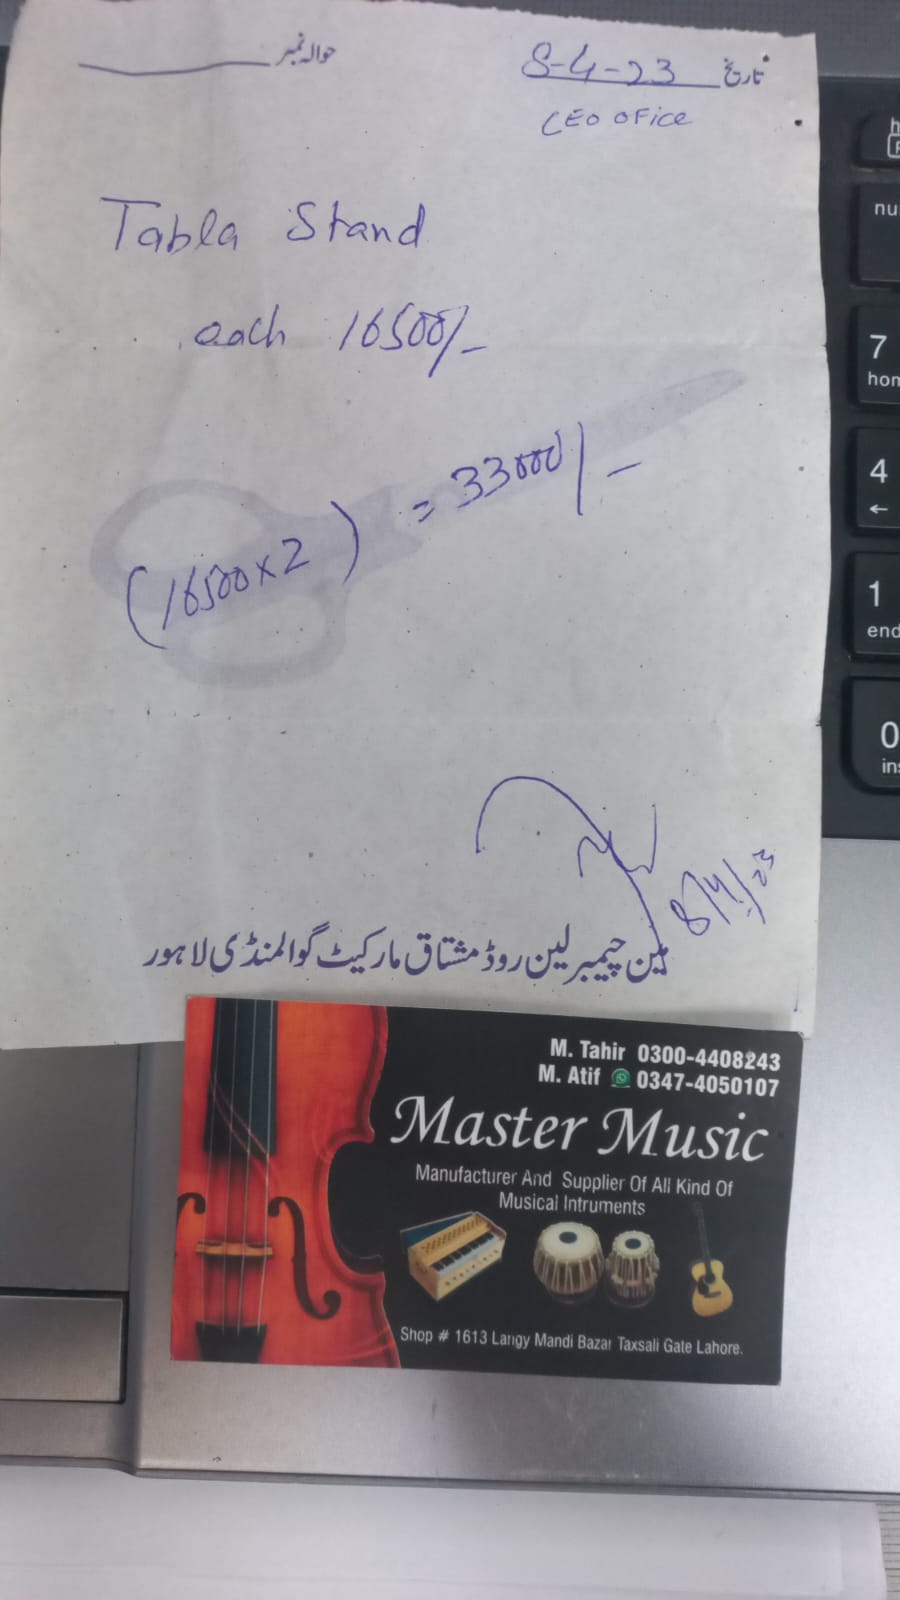 حوالہ نمبر
تاریخ 8-4-23
CEO OFice
Tabla Stand
each 16500/-
(16500x2) = 33000/-
8/4/23
مین چیمبر لین روڈ مشتاق مارکیٹ گوالمنڈی لاہور
M. Tahir 0300-4408243
M. Atif 0347-4050107
Master Music
Manufacturer And Supplier Of All Kind Of
Musical Intruments
Shop # 1613 Langy Mandi Bazar Taxsali Gate Lahore.
7
hom
4
←
1
end
0
ins